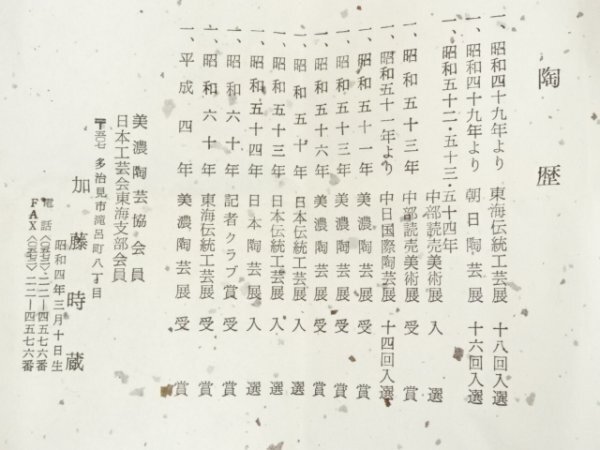 陶歴
一、昭和四十九年より 東海伝統工芸展 十八回入選
一、昭和四十九年より 朝日陶芸展 十六回入選
一、昭和五十二・五十三・五十四年
中部読売美術展 入選
一、昭和五十三年 中部読売美術展 受賞
一、昭和五十一年より 中日国際陶芸展 十四回入選
一、昭和五十一年 美濃陶芸展 受賞
一、昭和五十三年 美濃陶芸展 受賞
一、昭和五十六年 美濃陶芸展 受賞
一、昭和五十年 日本伝統工芸展 入選
一、昭和五十三年 日本伝統工芸展 入選
一、昭和五十四年 日本陶芸展 入選
一、昭和六十年 記者クラブ賞 受賞
一、昭和六十年 東海伝統工芸展 受賞
一、平成四年 美濃陶芸展 受賞
美濃陶芸協会員
日本工芸会東海支部会員
〒五〇七 多治見市滝呂町八丁目
加藤時蔵
昭和四年三月十日生
電話〈〇五七二〉二二―四五七六番
FAX〈〇五七二〉二二―四五七六番